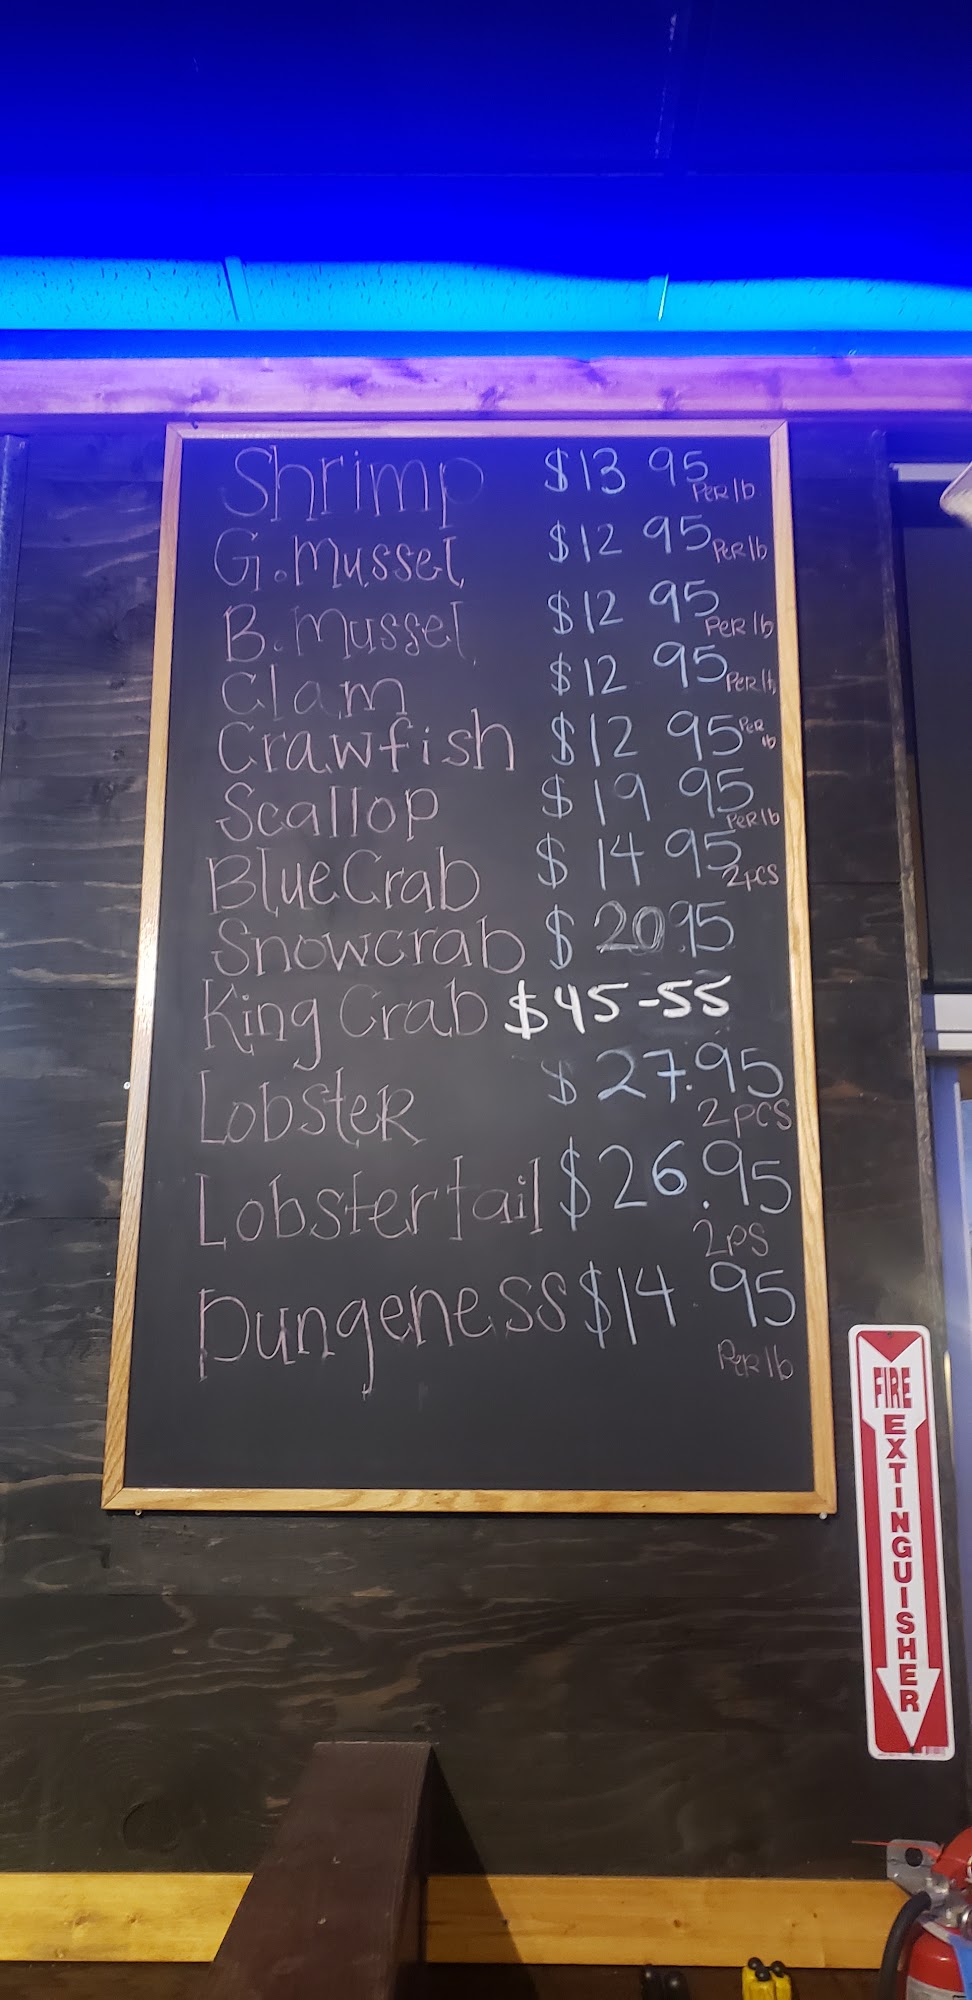 Shrimp $13 95 Per lb
G. Mussel $12 95 Per lb
B. Mussel $12 95 Per lb
Clam $12 95 Per lb
Crawfish $12 95 Per lb
Scallop $19 95 Per lb
Blue Crab $14 95 2pcs
Snowcrab $20 95
King Crab $45-55
Lobster $27.95
2pcs
Lobster tail $26.95
2ps
Dungeness $14.95
Per lb
FIRE
EXTINGUISHER